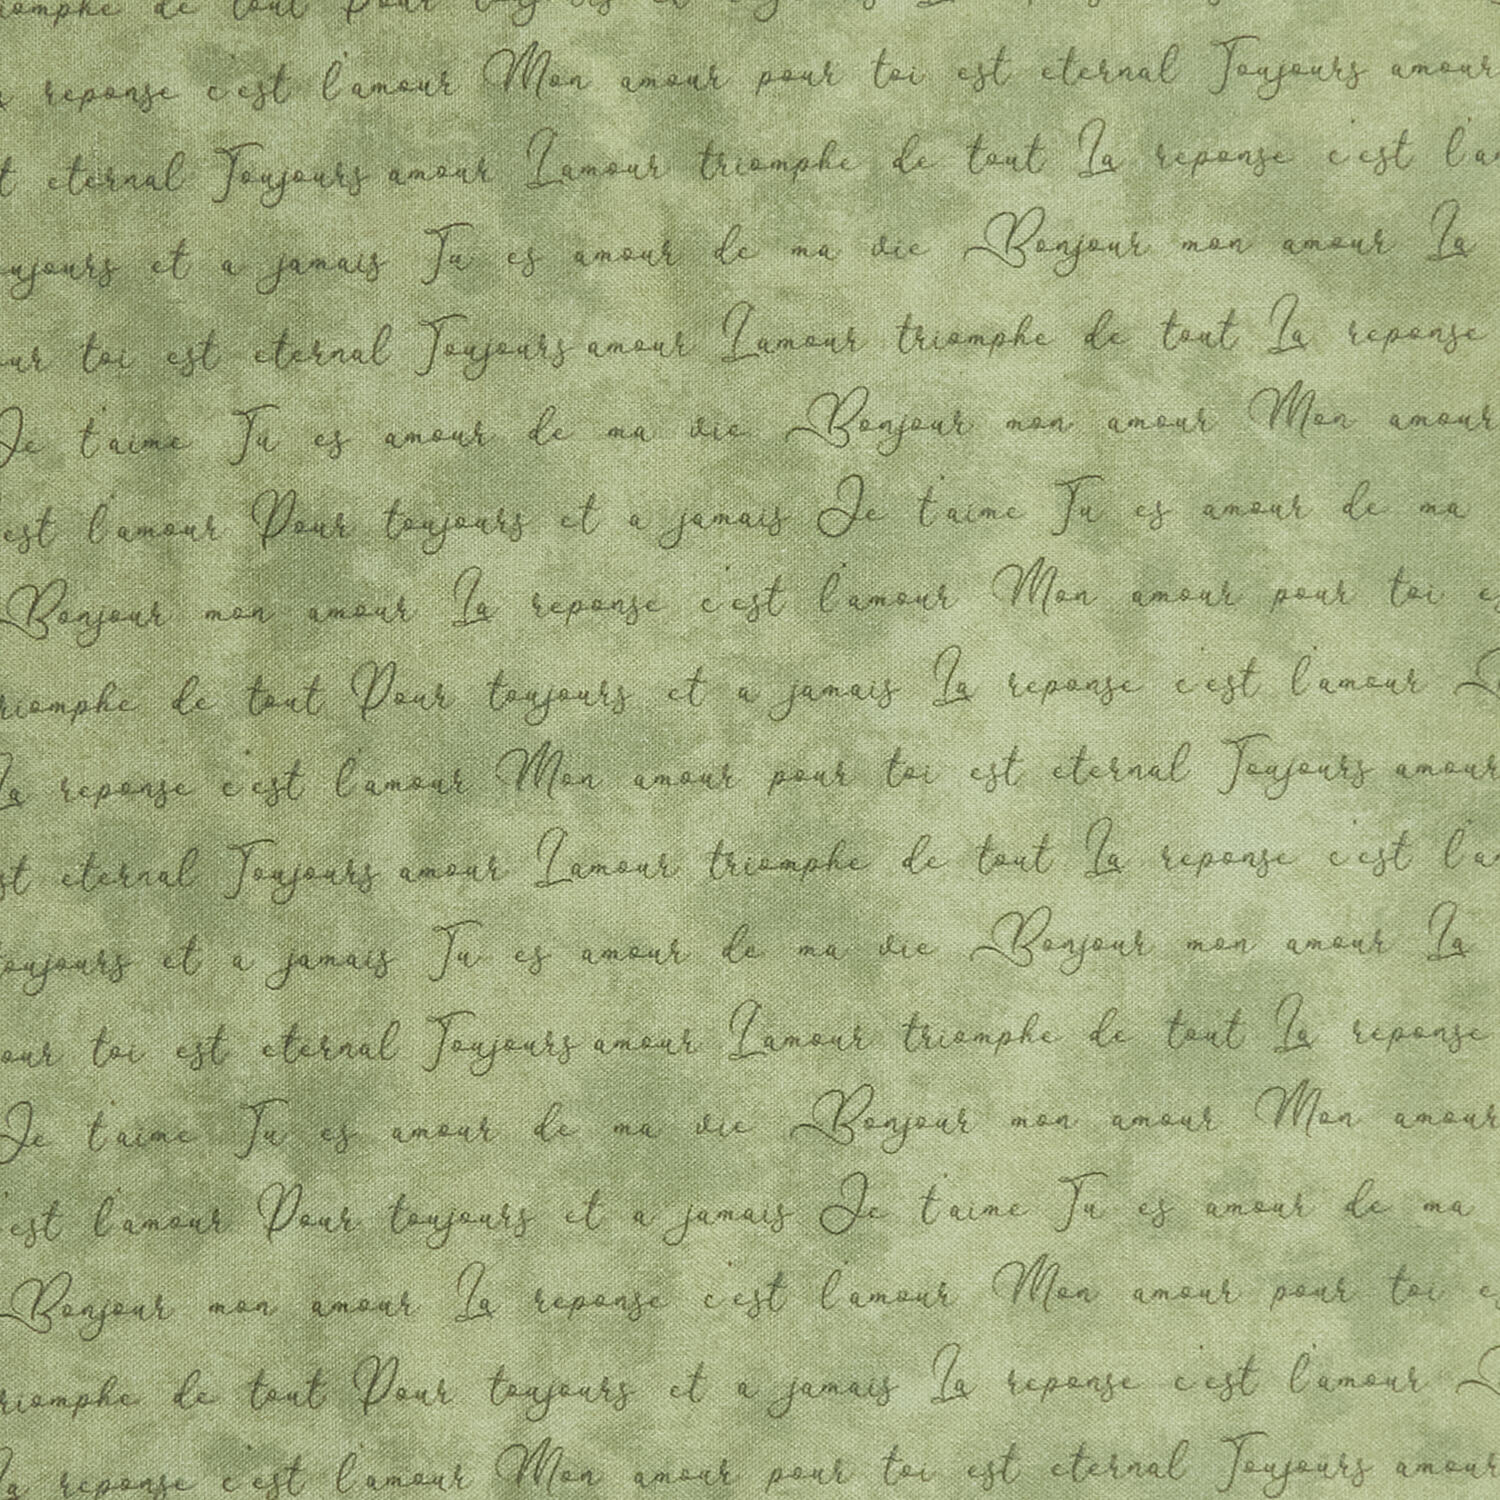 de tout Pour
reponse c'est l'amour Mon amour pour toi est eternal Toujours amour
eternal Toujours amour L'amour triomphe de tout La reponse c'est
et a jamais Tu es amour de ma vie Bonjour mon amour La
toi est eternal Toujours amour L'amour triomphe de tout La reponse
Je t'aime Tu es amour de ma vie Bonjour mon amour Mon amour
est l'amour Pour toujours et a jamais Je t'aime Tu es amour de ma
Bonjour mon amour La reponse c'est l'amour Mon amour pour toi
de tout Pour toujours et a jamais La reponse c'est l'amour
La reponse c'est l'amour Mon amour pour toi est eternal Toujours amour
eternal Toujours amour L'amour triomphe de tout La reponse c'est
toujours et a jamais Tu es amour de ma vie Bonjour mon amour La
toi est eternal Toujours amour L'amour triomphe de tout La reponse
Je t'aime Tu es amour de ma vie Bonjour mon amour Mon amour
est l'amour Pour toujours et a jamais Je t'aime Tu es amour de ma
Bonjour mon amour La reponse c'est l'amour Mon amour pour toi
de tout Pour toujours et a jamais La reponse c'est l'amour
La reponse c'est l'amour Mon amour pour toi est eternal Toujours amour